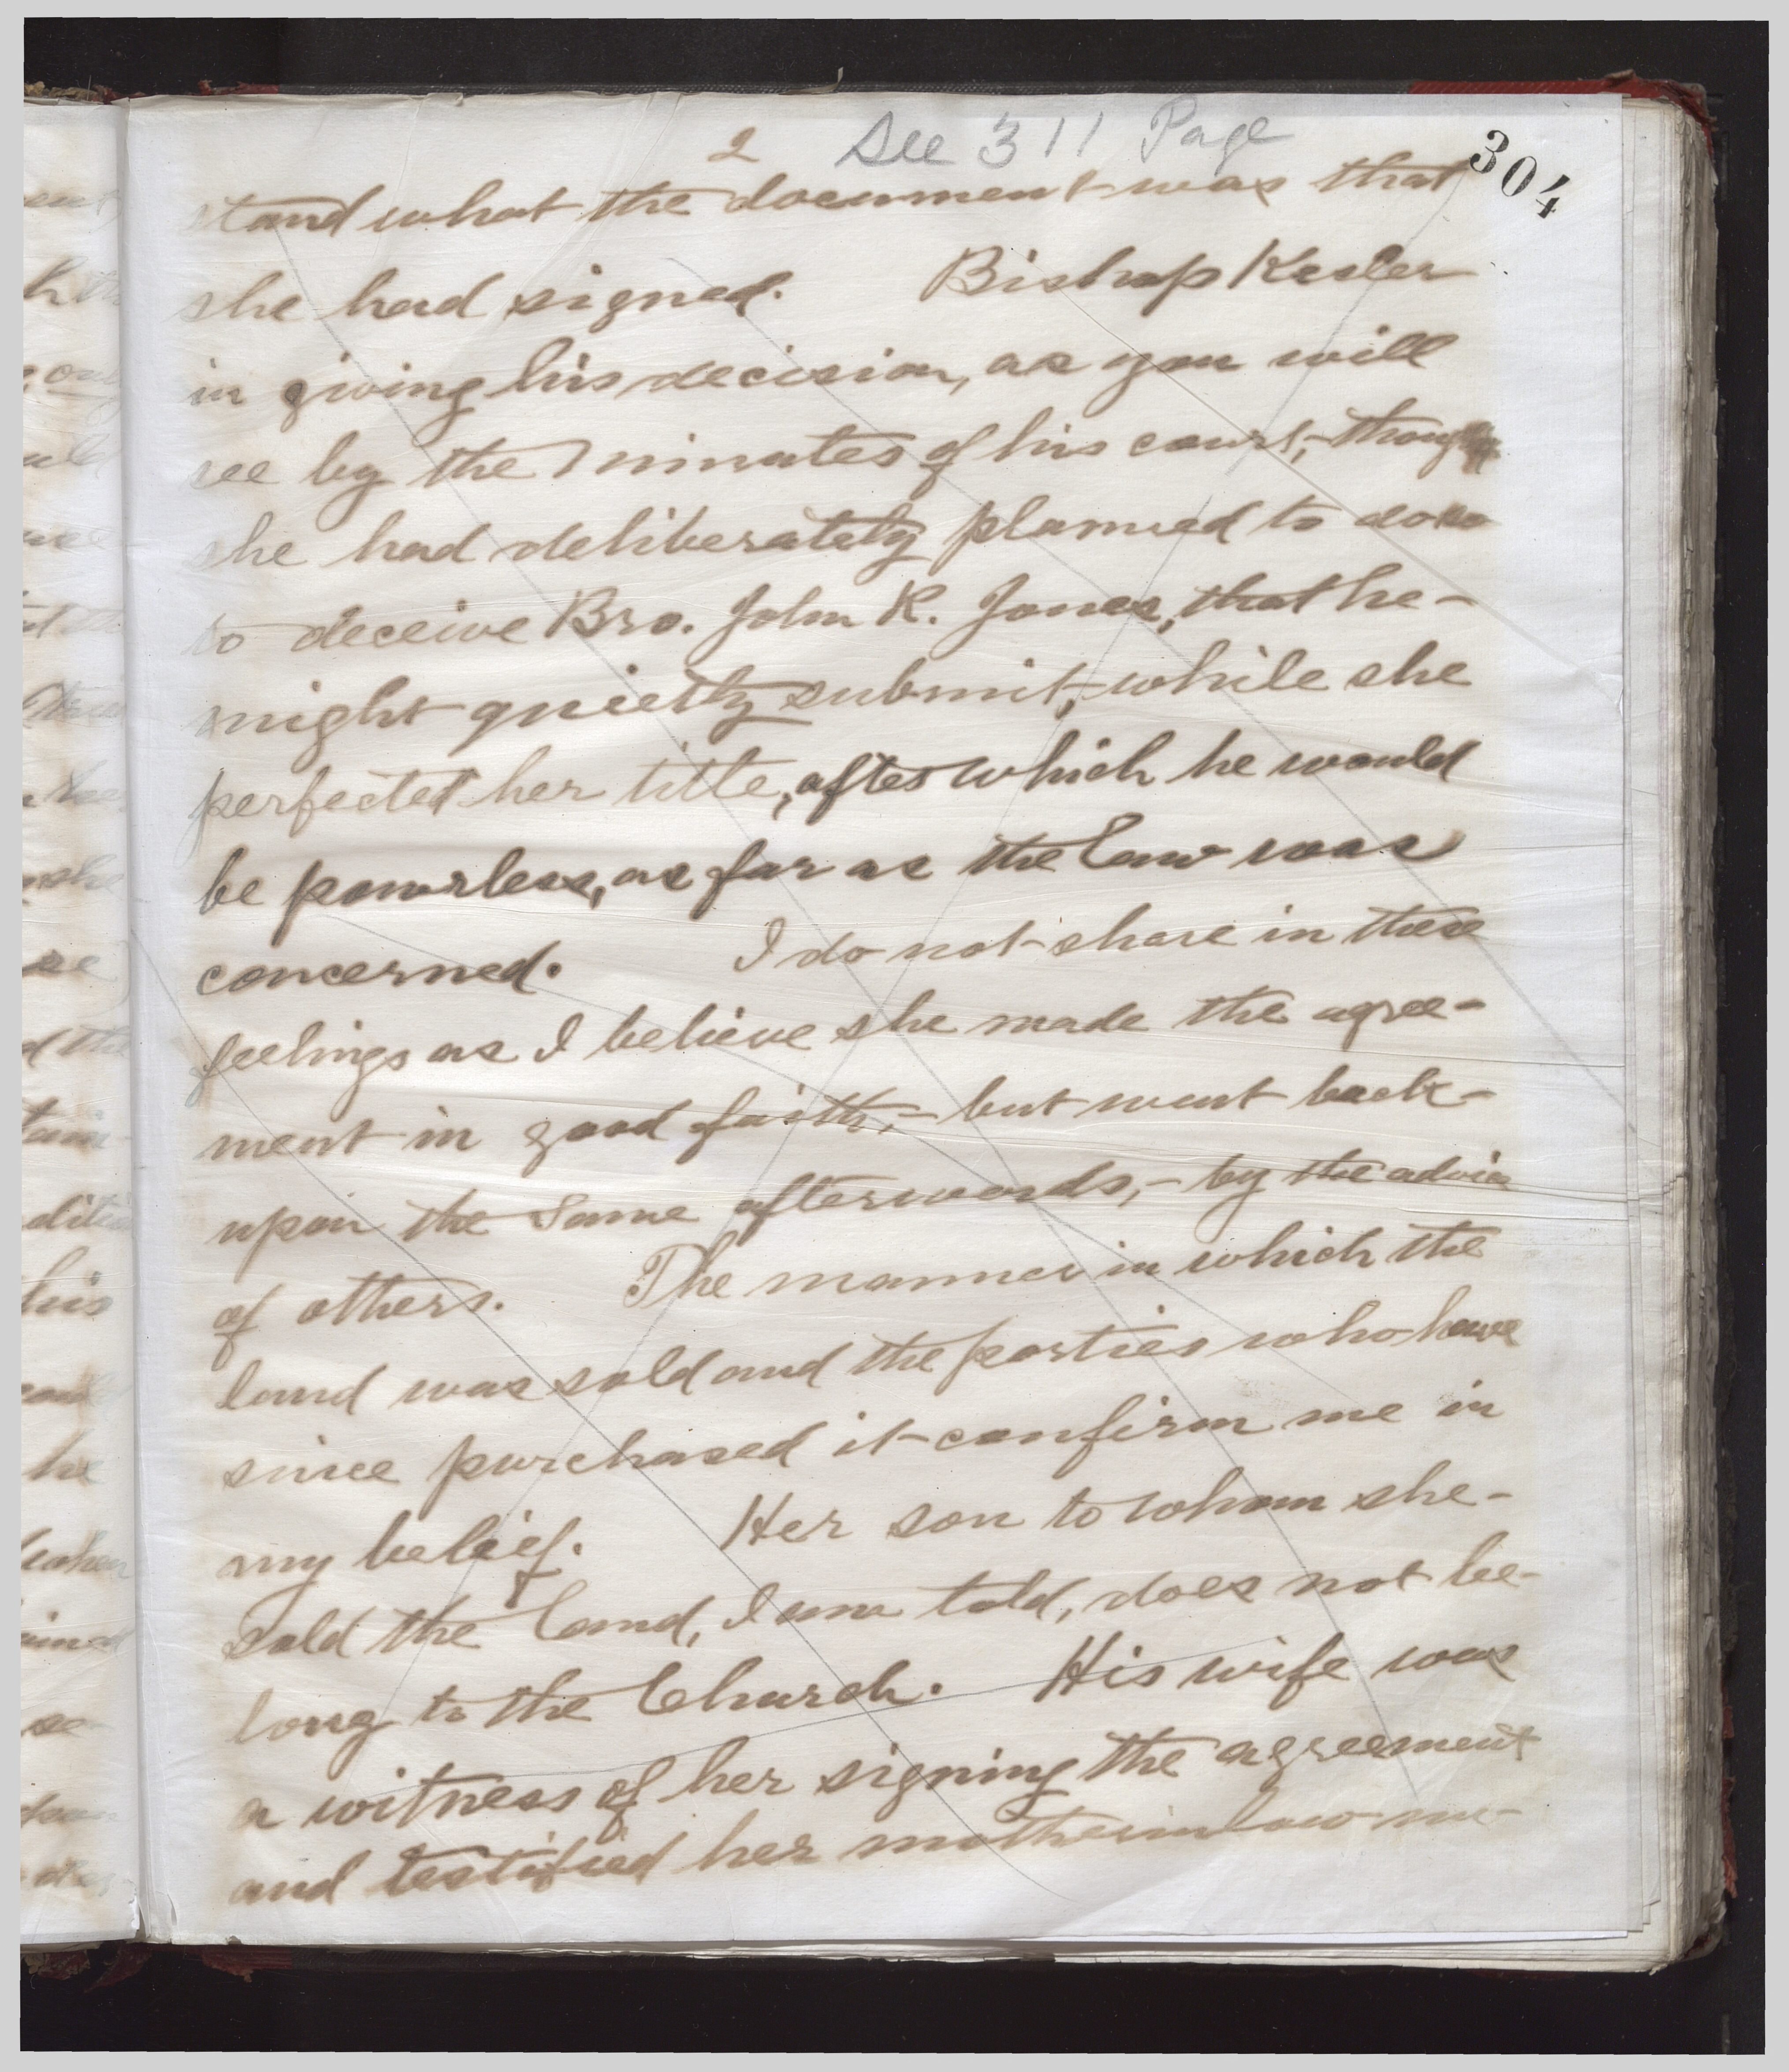 2 See 311 Page 304
stand what the document was that
she had signed. Bishop Kesler
in giving his decision, as you will
see by the minutes of his court,- thought
she had deliberately planned to do so
to deceive Bro. John R. Jones, that he-
might quietly submit, while she
perfected her title, after which he would
be powerless, as far as the law was
concerned. I do not share in these
feelings as I believe she made the agree-
ment in good faith,- but went back-
upon the same afterwards,- by the advice
of others. The manner in which the
land was sold and the parties who have
since purchased it confirm me in
my belief. Her son to whom she-
sold the land, I am told, does not be-
long to the Church. His wife was
a witness of her signing the agreement
and testified her motherinlaw